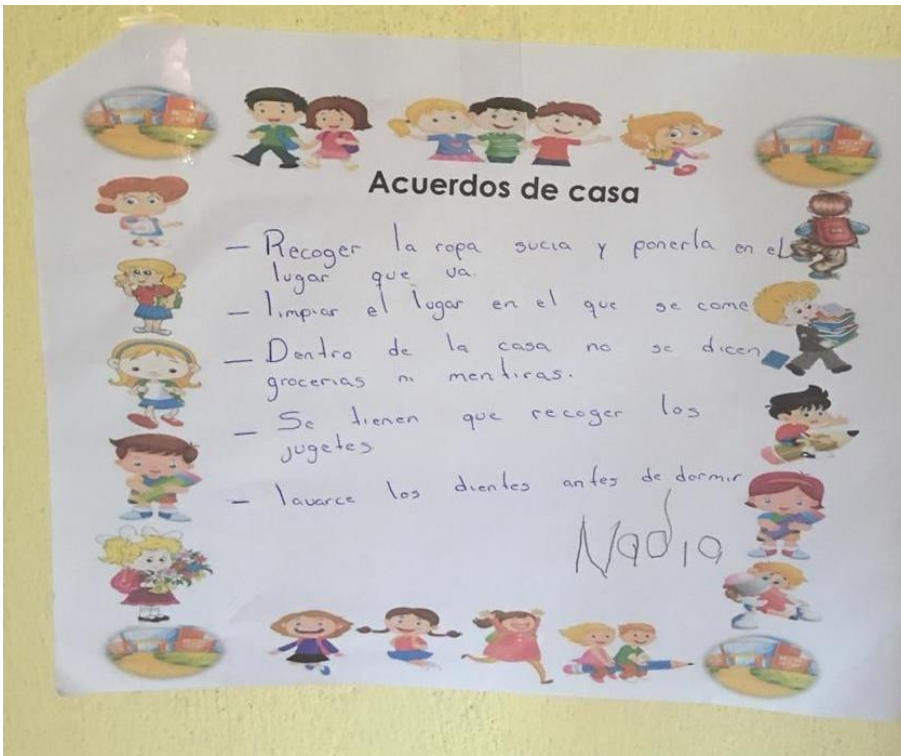 Acuerdos de casa
– Recoger la ropa sucia y ponerla en el
lugar que va.
– limpiar el lugar en el que se come
– Dentro de la casa no se dicen
grocerias ni mentiras.
– Se tienen que recoger los
jugetes
– lavarce los dientes antes de dormir
Nadia